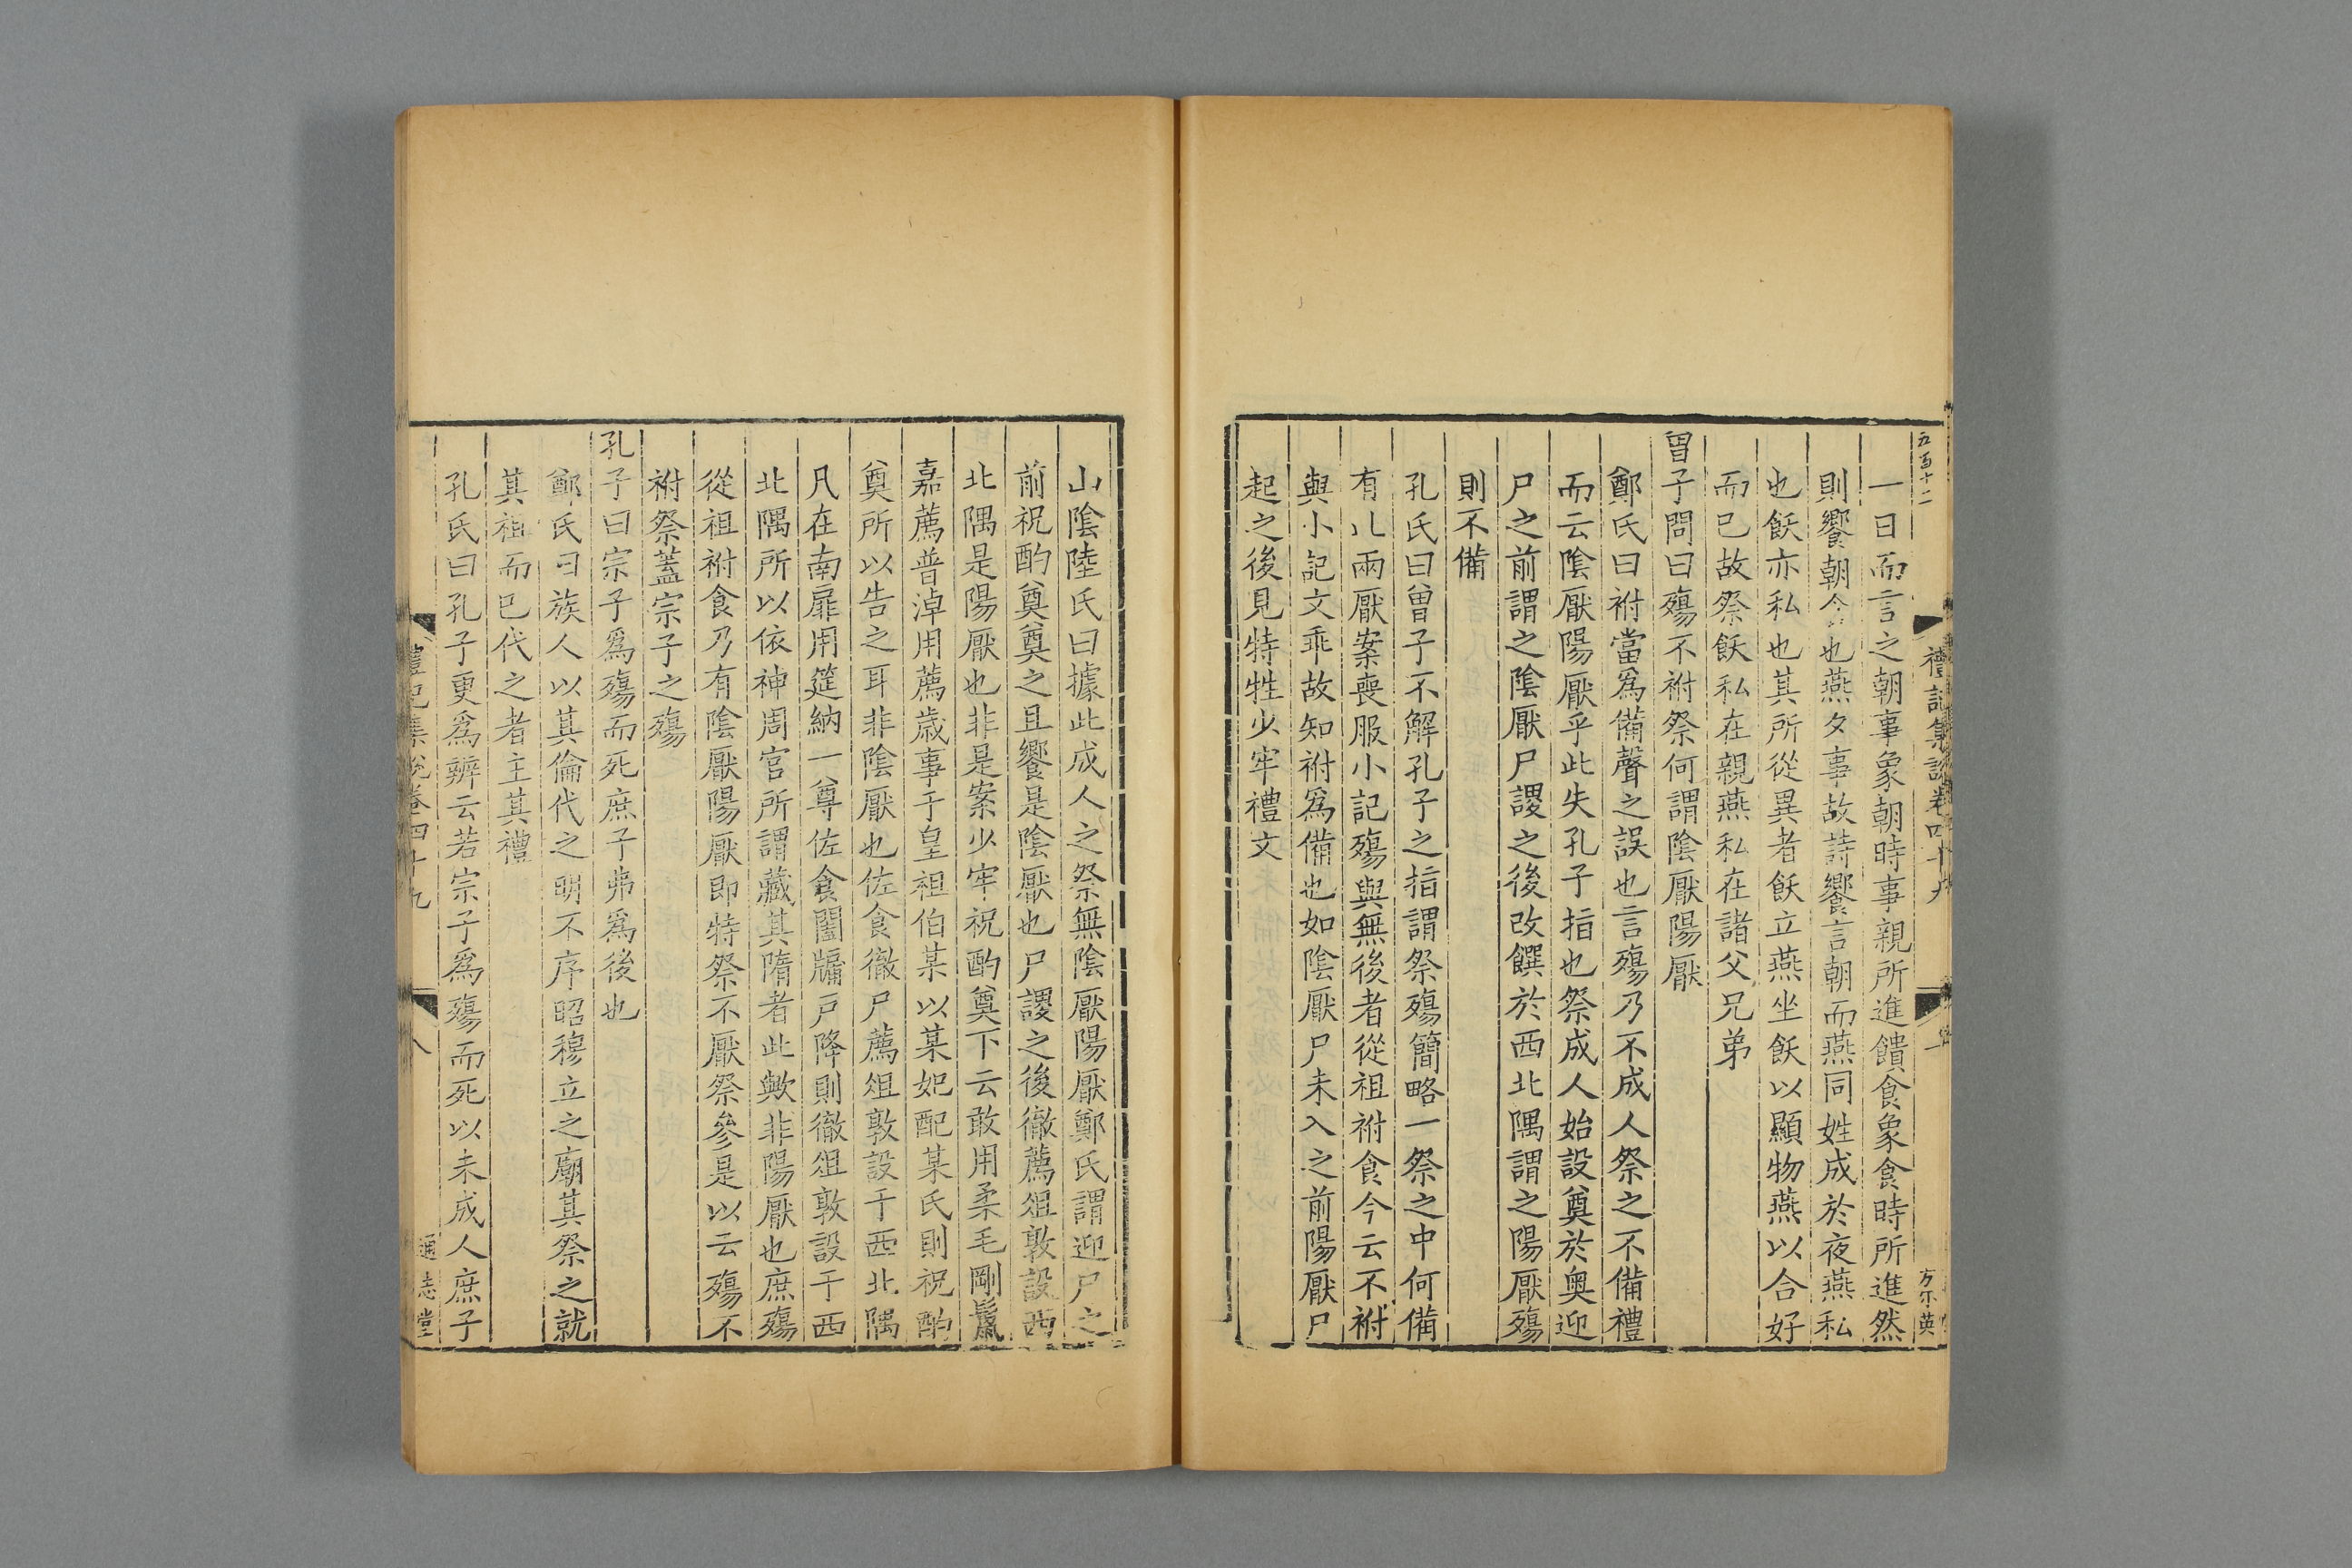 五百十二
禮記集說卷四十九
方尔英
一日而言之朝事象朝時事親所進饋食象食時所進然
則饗朝含也燕夕事故詩饗言朝而燕同姓成於夜燕私
也飫亦私也其所從異者飫立燕坐飫以顯物燕以合好
而已故祭飫私在親燕私在諸父兄弟
曾子問曰殤不祔祭何謂陰厭陽厭
鄭氏曰祔當爲備聲之誤也言殤乃不成人祭之不備禮
而云陰厭陽厭乎此失孔子指也祭成人始設奠於奥迎
尸之前謂之陰厭尸謖之後改饌於西北隅謂之陽厭殤
則不備
孔氏曰曾子不解孔子之指謂祭殤簡略一祭之中何備
有此兩厭案喪服小記殤與無後者從祖祔食今云不祔
與小記文乖故知祔爲備也如陰厭尸未入之前陽厭尸
起之後見特牲少牢禮文
山陰陸氏曰據此成人之祭無陰厭陽厭鄭氏謂迎尸之
前祝酌奠奠之且饗是陰厭也尸謖之後徹薦俎敦設西
北隅是陽厭也非是案少牢祝酌奠下云敢用柔毛剛鬣
嘉薦普淖用薦歲事于皇祖伯某以某妃配某氏則祝酌
奠所以告之耳非陰厭也佐食徹尸薦俎敦設于西北隅
凡在南扉用筵納一尊佐食闔牖戶降則徹俎敦設于西
北隅所以依神周官所謂藏其隋者此歟非陽厭也庶殤
從祖祔食乃有陰厭陽厭即特祭不厭祭參是以云殤不
祔祭蓋宗子之殤
孔子曰宗子爲殤而死庶子弗爲後也
鄭氏曰族人以其倫代之明不序昭穆立之廟其祭之就
其祖而已代之者主其禮
孔氏曰孔子更爲辨云若宗子爲殤而死以未成人庶子
禮記集說卷四十九
八
通志堂